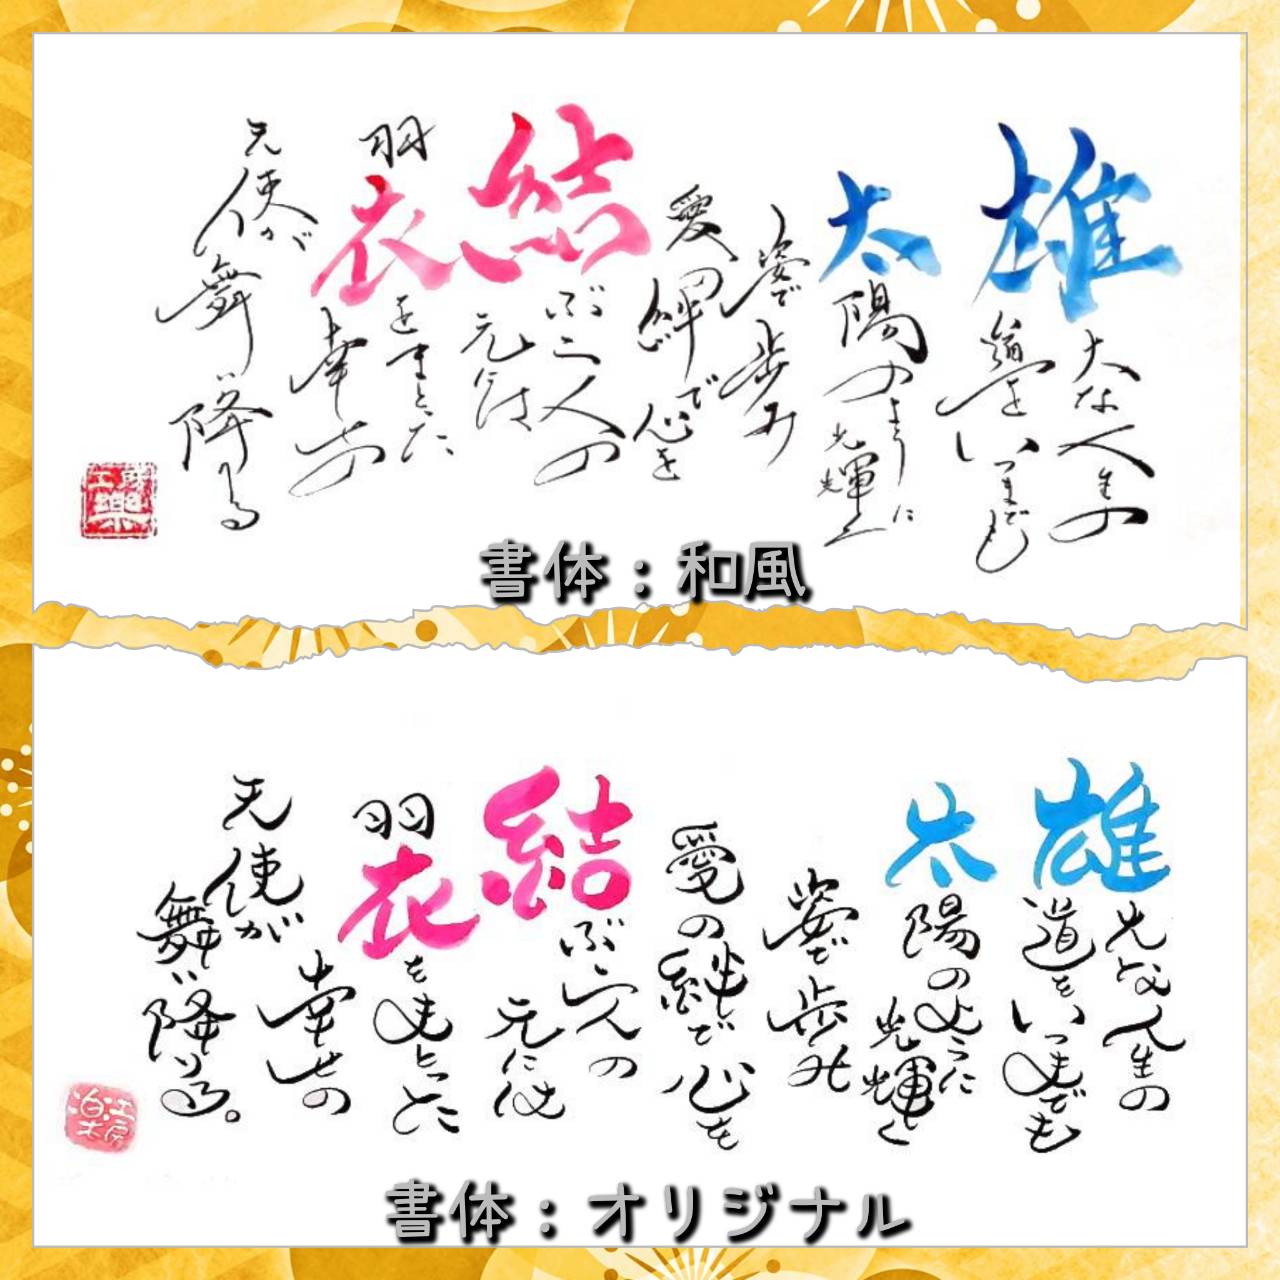 雄大な人生の
道をいつまでも
太陽のように
光輝く
姿で歩み
愛絆で心を
結ぶ二人の
元には
羽衣をまとった
幸せの
天使が
舞い降りる
書体：和風
雄大な人生の
道をいつまでも
太陽のように
光輝く
姿で歩み
愛の絆で心を
結ぶ二人の
元には
羽衣をまとった
幸せの
天使が
舞い降りる。
書体：オリジナル